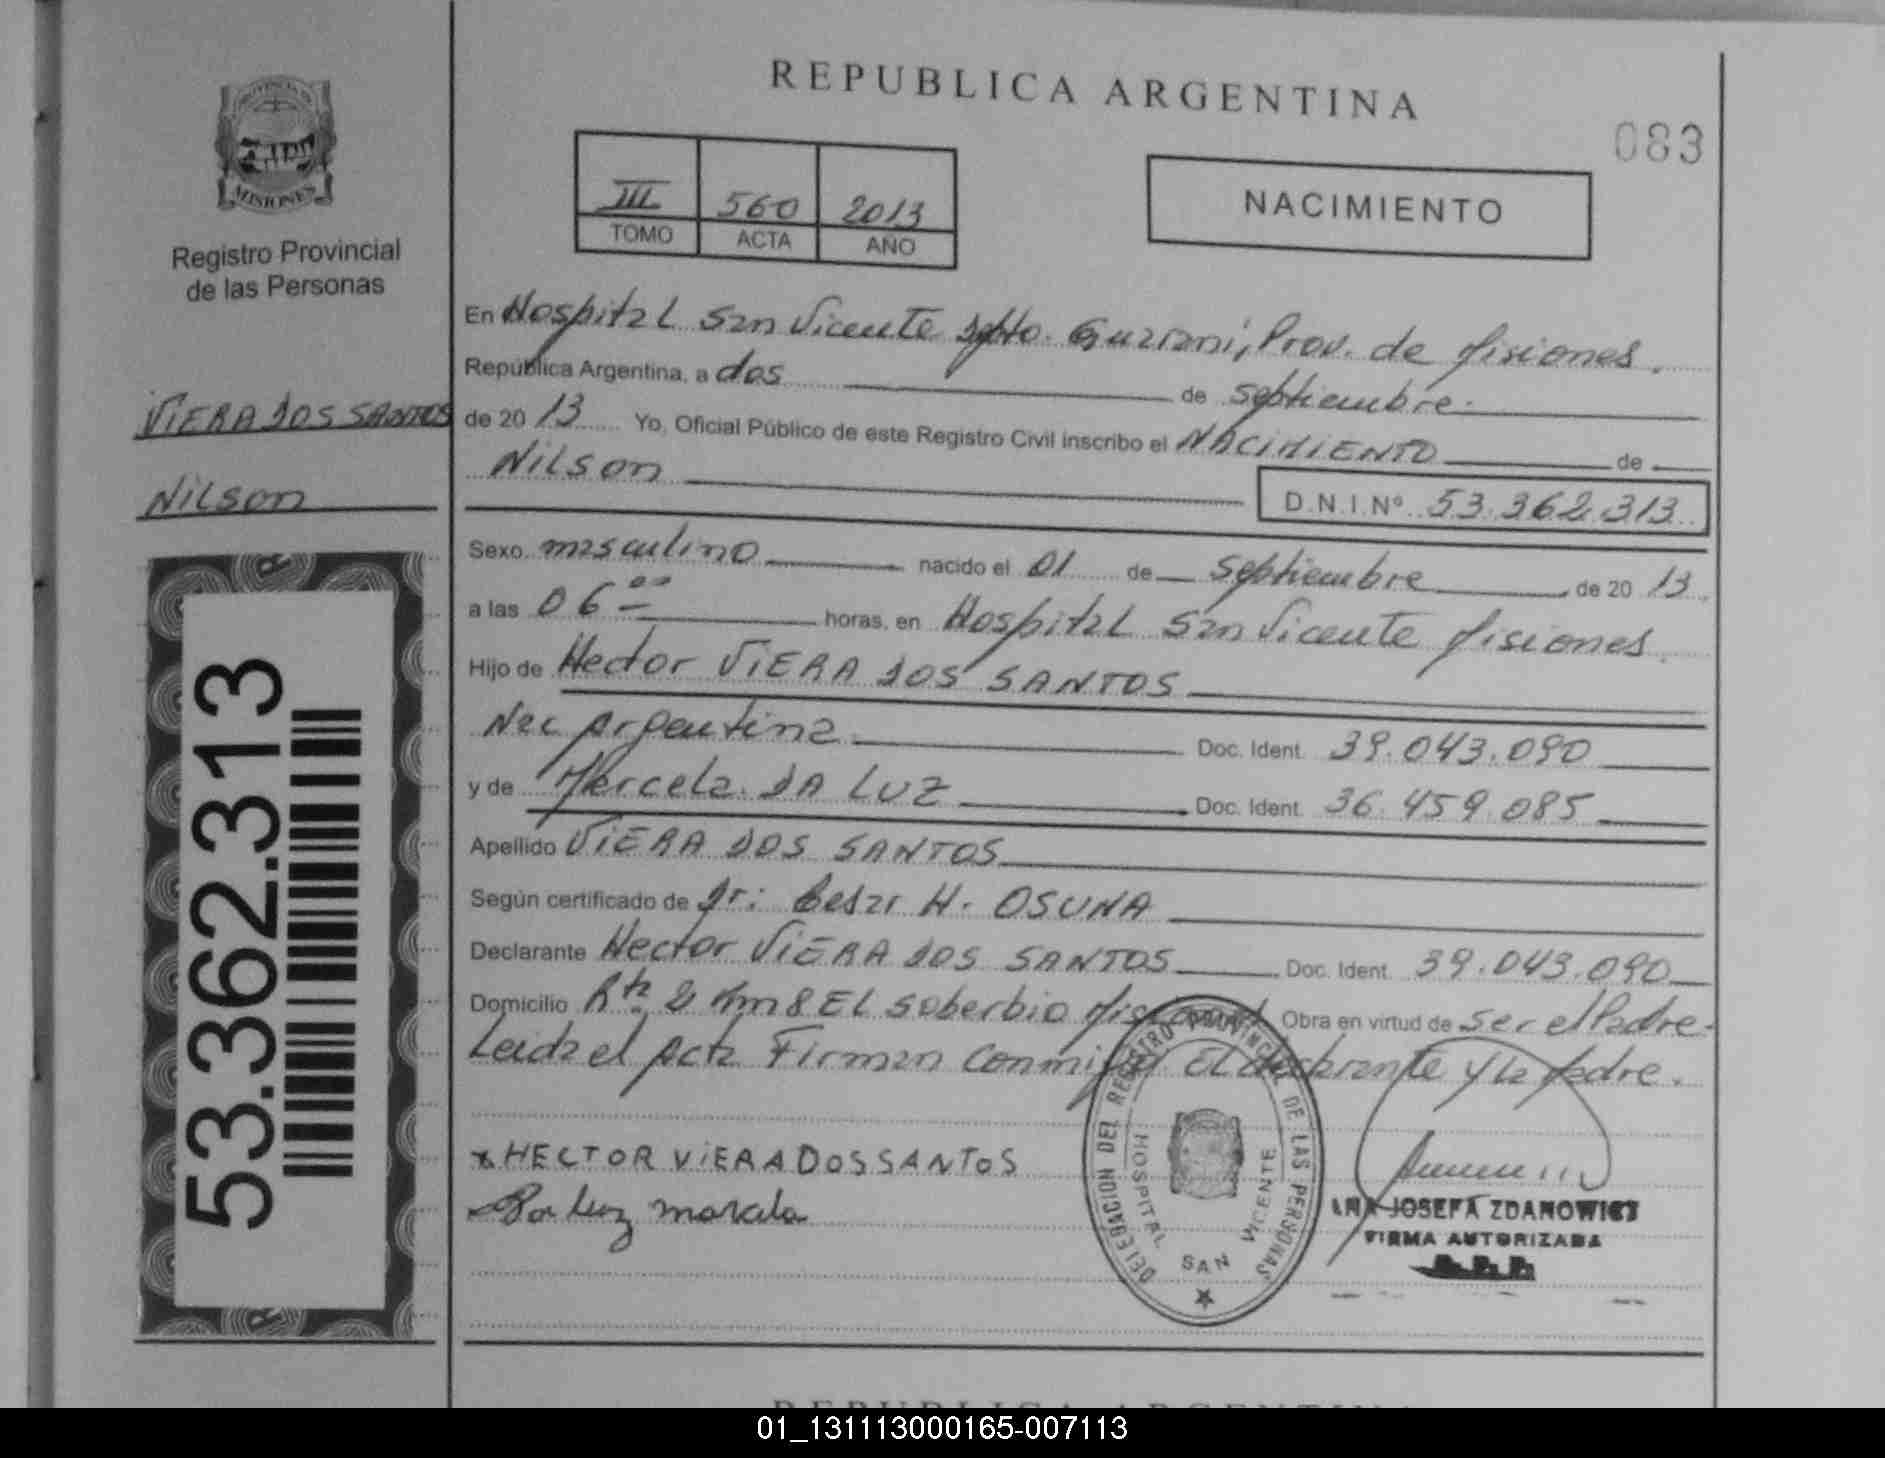 REPUBLICA ARGENTINA
083
PROVINCIA DE
MISIONES
Registro Provincial
de las Personas
III 560 2013
TOMO ACTA AÑO
NACIMIENTO
VIERA DOS SANTOS
Nilson
53.362.313
En Hospital San Vicente Dpto. Guarani, Prov. de Misiones.
República Argentina, a dos de septiembre.
de 20 13 Yo, Oficial Público de este Registro Civil inscribo el NACIMIENTO de
Nilson D.N.I.Nº 53.362.313
Sexo masculino nacido el 01 de septiembre de 20 13.
a las 06 00 horas, en Hospital San Vicente Misiones.
Hijo de Hector VIERA DOS SANTOS
Nac Argentina. Doc. Ident. 39.043.090
y de Marcela DA LUZ Doc. Ident. 36.459.085
Apellido VIERA DOS SANTOS
Según certificado de Dr: Cesar H. OSUNA
Declarante Hector VIERA DOS SANTOS Doc. Ident. 39.043.090
Domicilio Rta 2 Km 8 EL Soberbio Obra en virtud de ser el Padre.
Leida el Acta Firman conmigo El declarante y la Madre.
x HECTOR VIERA DOS SANTOS
Da Luz Marcela
DELEGACION DEL REGISTRO PROVINCIAL DE LAS PERSONAS
HOSPITAL SAN VICENTE
JOSEFA ZDANOWICZ
FIRMA AUTORIZADA
REPUBLICA ARGENTINA
01_131113000165-007113